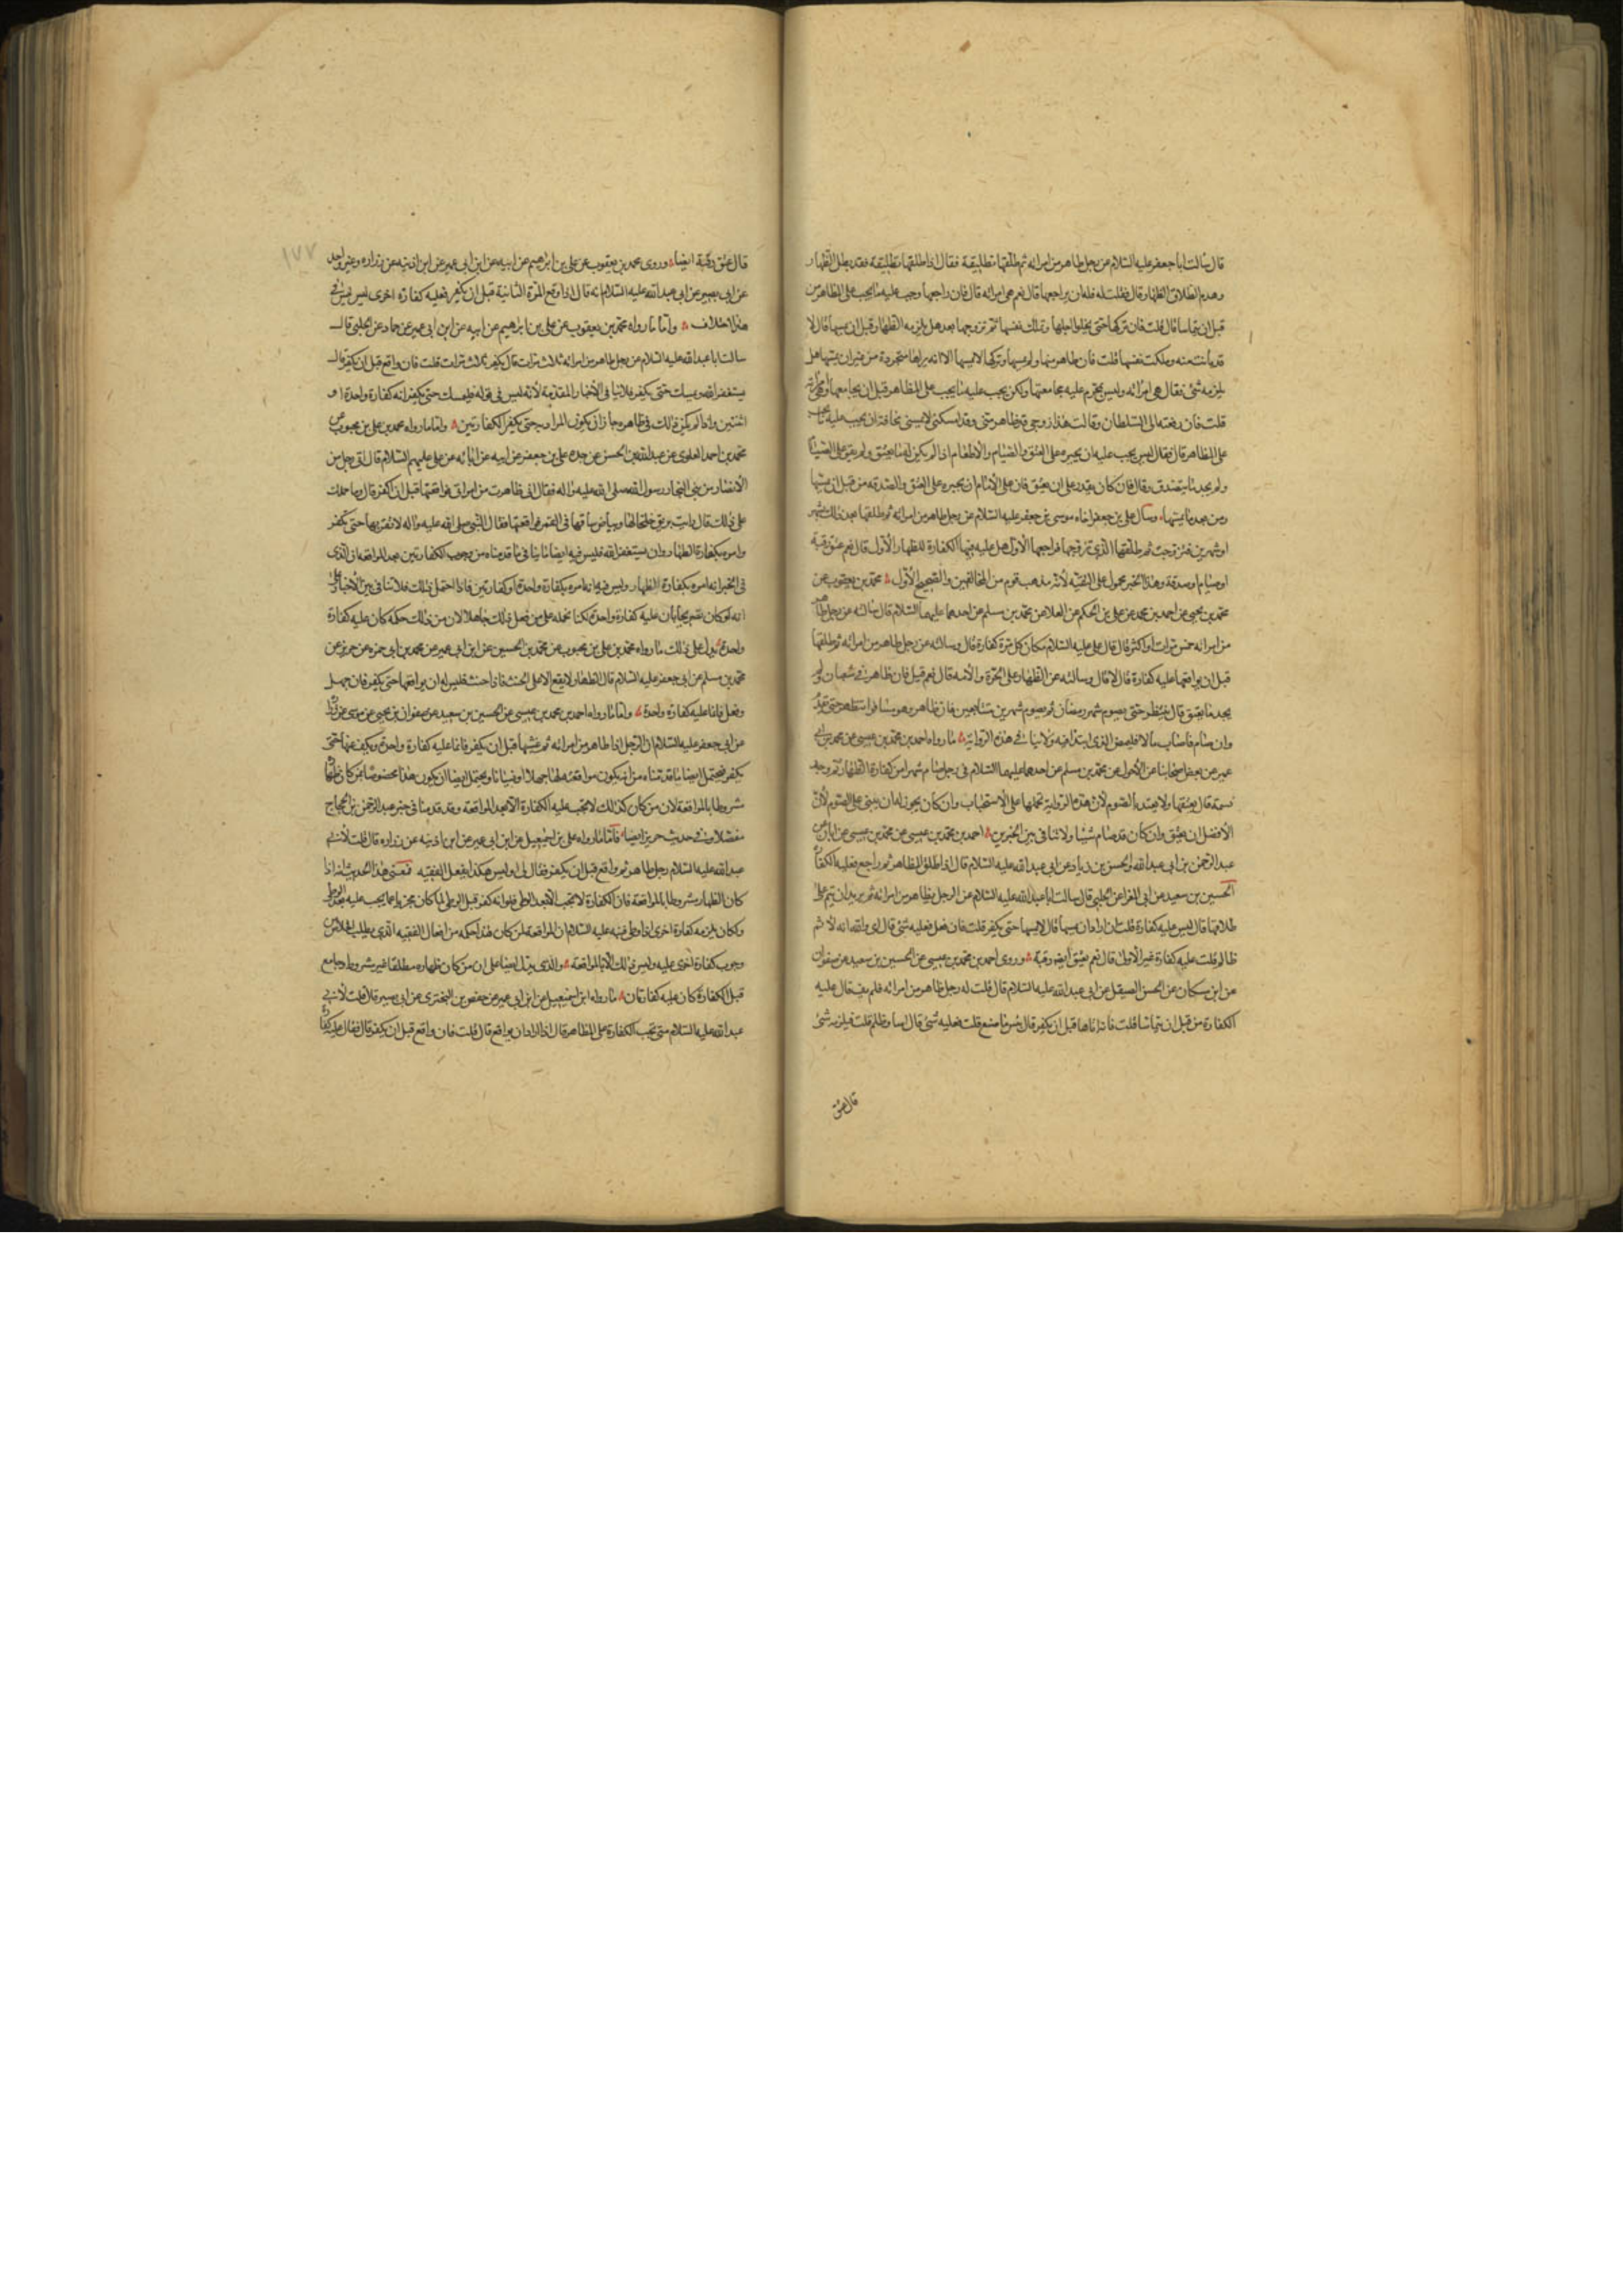 قال سالت ابا جعفر عليه السلام عن رجل ظاهر من امراته ثم طلقها تطليقة فقال اذا طلقها تطليقة فقد بطل الظهار
وهدم الطلاق الظهار قال فقلت له فله ان يراجعها قال نعم هي امراته قال فان راجعها وجب عليه ما يجب على المظاهر من
قبل ان يتماسا قال قلت فان تركها حتى يخلوا اجلها وتملك نفسها ثم تزوجها بعد هل يلزمه الظهار قبل ان يمسها قال لا
قد بانت منه وملكت نفسها قلت فان ظاهر منها ولم يمسها وتركها لا يمسها الا انه يراها متجردة من غير ان يمسها هل
يلزمه شئ فقال هي امراته وليس يحرم عليه مجامعتها ولكن يجب عليه ما يجب على المظاهر قبل ان يجامعها وهي امراته
قلت فان رفعته الى السلطان وقالت هذا زوجي قد ظاهر مني وقد امسكني لا يمسني مخافة ان يجب عليه ما يجب
على المظاهر قال فقال ليس يجب عليه ان يجبره على العتق والصيام والاطعام اذا لم يكن له ما يعتق ولم يقو على الصيام
ولم يجد ما يتصدق وقال فان كان يقدر على ان يعتق فان على الامام ان يجبره على العتق والصدقة من قبل ان يمسها
ومن بعد ما يمسها وسال علي بن جعفر اخاه موسى بن جعفر عليه السلام عن رجل ظاهر من امراته ثم طلقها بعد ذلك بشهر
او شهرين فتزوجت ثم طلقها الذي تزوجها فراجعها الاول هل عليه فيها الكفارة للظهار الاول قال نعم عتق رقبة
او صيام او صدقة وهذا الخبر محمول على التقية لانه مذهب قوم من المخالفين والصحيح الاول محمد بن يعقوب عن
محمد بن يحيى عن احمد بن محمد عن علي بن الحكم عن العلا عن محمد بن مسلم عن احدهما عليهما السلام قال سالته عن رجل ظاهر
من امراته خمس مرات او اكثر قال قال علي عليه السلام مكان كل مرة كفارة قال وسالته عن رجل ظاهر من امراته ثم طلقها
قبل ان يواقعها عليه كفارة قال لا قال وسالته عن الظهار على الحرة والامة قال نعم قيل فان ظاهر في شعبان ولم
يجد ما يعتق قال ينتظر حتى يصوم شهر رمضان ثم يصوم شهرين متتابعين فان ظاهر وهو مسافر انتظر حتى يقدم
وان صام فاصاب مالا فليمض الذي ابتدا فيه ولا ينافي هذه الرواية ما رواه احمد بن محمد بن عيسى عن محمد بن ابي
عمير عن بعض اصحابنا عن الاحول عن محمد بن مسلم عن احدهما عليهما السلام في رجل صام شهرا من كفارة الظهار ثم وجد
نسمة قال يعتقها ولا يعتد بالصوم لان هذه الرواية نحملها على الاستحباب وان كان يجوز له ان يبني على الصوم لان
الافضل ان يعتق وان كان قد صام شيئا ولا تنافي بين الخبرين احمد بن محمد بن عيسى عن محمد بن عيسى عن ابان عن
عبد الرحمن بن ابي عبد الله والحسن بن زياد عن ابي عبد الله عليه السلام قال اذا طلق المظاهر ثم راجع فعليه الكفارة
الحسين بن سعيد عن ابي المغرا عن الحلبي قال سالت ابا عبد الله عليه السلام عن الرجل يظاهر من امراته ثم يريد ان يتم على
طلاقها قال ليس عليه كفارة قلت ان اراد ان يمسها قال لا يمسها حتى يكفر قلت فان فعل فعليه شئ قال اي والله انه لاثم
ظالم قلت عليه كفارة غير الاولى قال نعم يعتق ايضا رقبة وروى احمد بن محمد بن عيسى عن الحسين بن سعيد عن صفوان
عن ابن مسكان عن الحسن الصيقل عن ابي عبد الله عليه السلام قال قلت له رجل ظاهر من امراته فلم يف قال عليه
الكفارة من قبل ان يتماسا قلت فانه اتاها قبل ان يكفر قال بئس ما صنع قلت فعليه شئ قال اسا وظلم قلت فيلزمه شئ
قال عتق
١٧٧
قال عتق رقبة ايضا وروى محمد بن يعقوب عن علي بن ابراهيم عن ابيه عن ابن ابي عمير عن ابن اذينه عن زراره وغير واحد
عن ابي بصير عن ابي عبد الله عليه السلام انه قال اذا واقع المرة الثانية قبل ان يكفر فعليه كفارة اخرى ليس في
هذا اختلاف واما ما رواه محمد بن يعقوب عن علي بن ابراهيم عن ابيه عن ابن ابي عمير عن حماد عن الحلبي قال
سالت ابا عبد الله عليه السلام عن رجل ظاهر من امراته ثلاث مرات قال يكفر ثلاث مرات قلت فان واقع قبل ان يكفر قال
يستغفر الله ويمسك حتى يكفر فلا ينافي الاخبار المقدمة لانه ليس في قوله فليمسك حتى يكفر انه كفارة واحدة او
اثنتين واذا لم يكن ذلك في ظاهره جاز ان يكون المراد حتى يكفر الكفارتين واما ما رواه محمد بن علي بن محبوب عن
محمد بن احمد العلوي عن عبد الله بن الحسن عن جده علي بن جعفر عن اخيه عن ابائه عن علي عليهم السلام قال اتى رجل من
الانصار من بني النجار رسول الله صلى الله عليه واله فقال اني ظاهرت من امراتي فواقعتها قبل ان اكفر قال وما حملك
على ذلك قال رايت بريق خلخالها وبياض ساقها في القمر فواقعتها فقال النبي صلى الله عليه واله لا تقربها حتى تكفر
وامره بكفارة الظهار وان يستغفر الله فليس فيه ايضا ما ينافي ما قدمناه من وجوب الكفارتين بعد المواقعة لان الذي
في الخبر انه امره بكفارة الظهار وليس فيه انه امره بكفارة واحدة او كفارتين فاذا احتمل ذلك فلا تنافي بين الاخبار على
انه لو كان تصريحا بان عليه كفارة واحدة لكنا نحمله على من فعل ذلك جاهلا لان من ذلك حكمه كان عليه كفارة
واحدة يدل على ذلك ما رواه محمد بن علي بن محبوب عن محمد بن الحسين عن ابن ابي عمير عن محمد بن ابي حمزه عن حريز عن
محمد بن مسلم عن ابي جعفر عليه السلام قال الظهار لا يقع الا على الحنث فاذا حنث فليس له ان يواقعها حتى يكفر فان جهل
وفعل فانما عليه كفارة واحدة واما ما رواه احمد بن محمد بن عيسى عن الحسين بن سعيد عن صفوان بن يحيى عن موسى عن زرارة
عن ابي جعفر عليه السلام ان الرجل اذا ظاهر من امراته ثم غشيها قبل ان يكفر فانما عليه كفارة واحدة ويكف عنها حتى
يكفر فيحتمل ايضا ما قدمناه من ان يكون مواقعته لها جهلا او نسيانا ويحتمل ايضا ان يكون هذا مخصوصا بمن كان ظهاره
مشروطا بالمواقعة لان من كان كذلك لا يجب عليه الكفارة الا بعد المواقعة وقد قدمنا في خبر عبد الرحمن بن الحجاج
مفصلا وفي حديث حريز ايضا فاما ما رواه علي بن اسمعيل عن ابن ابي عمير عن ابن اذينه عن زراره قال قلت لابي
عبد الله عليه السلام رجل ظاهر ثم واقع قبل ان يكفر فقال لي اوليس هكذا يفعل الفقيه فمعنى هذا الحديث انه اذا
كان الظهار مشروطا بالمواقعة فان الكفارة لا تجب الا بعد الوطي فلو انه كفر قبل الوطي لما كان مجزيا عما يجب عليه بعد الوطي
ولكان يلزمه كفارة اخرى اذا وطي فنبه عليه السلام ان المواقعة لمن كان هذا حكمه من افعال الفقيه الذي يطلب الخلاص من
وجوب كفارة اخرى عليه وليس ذلك الا بالمواقعة والذي يدل ايضا على ان من كان ظهاره مطلقا غير مشروط وجامع
قبل الكفارة كان عليه كفارتان ما رواه ابن اسمعيل عن ابن ابي عمير عن حفص بن البختري عن ابي بصير قال قلت لابي
عبد الله عليه السلام متى تجب الكفارة على المظاهر قال اذا اراد ان يواقع قال قلت فان واقع قبل ان يكفر قال فقال عليه كفارة